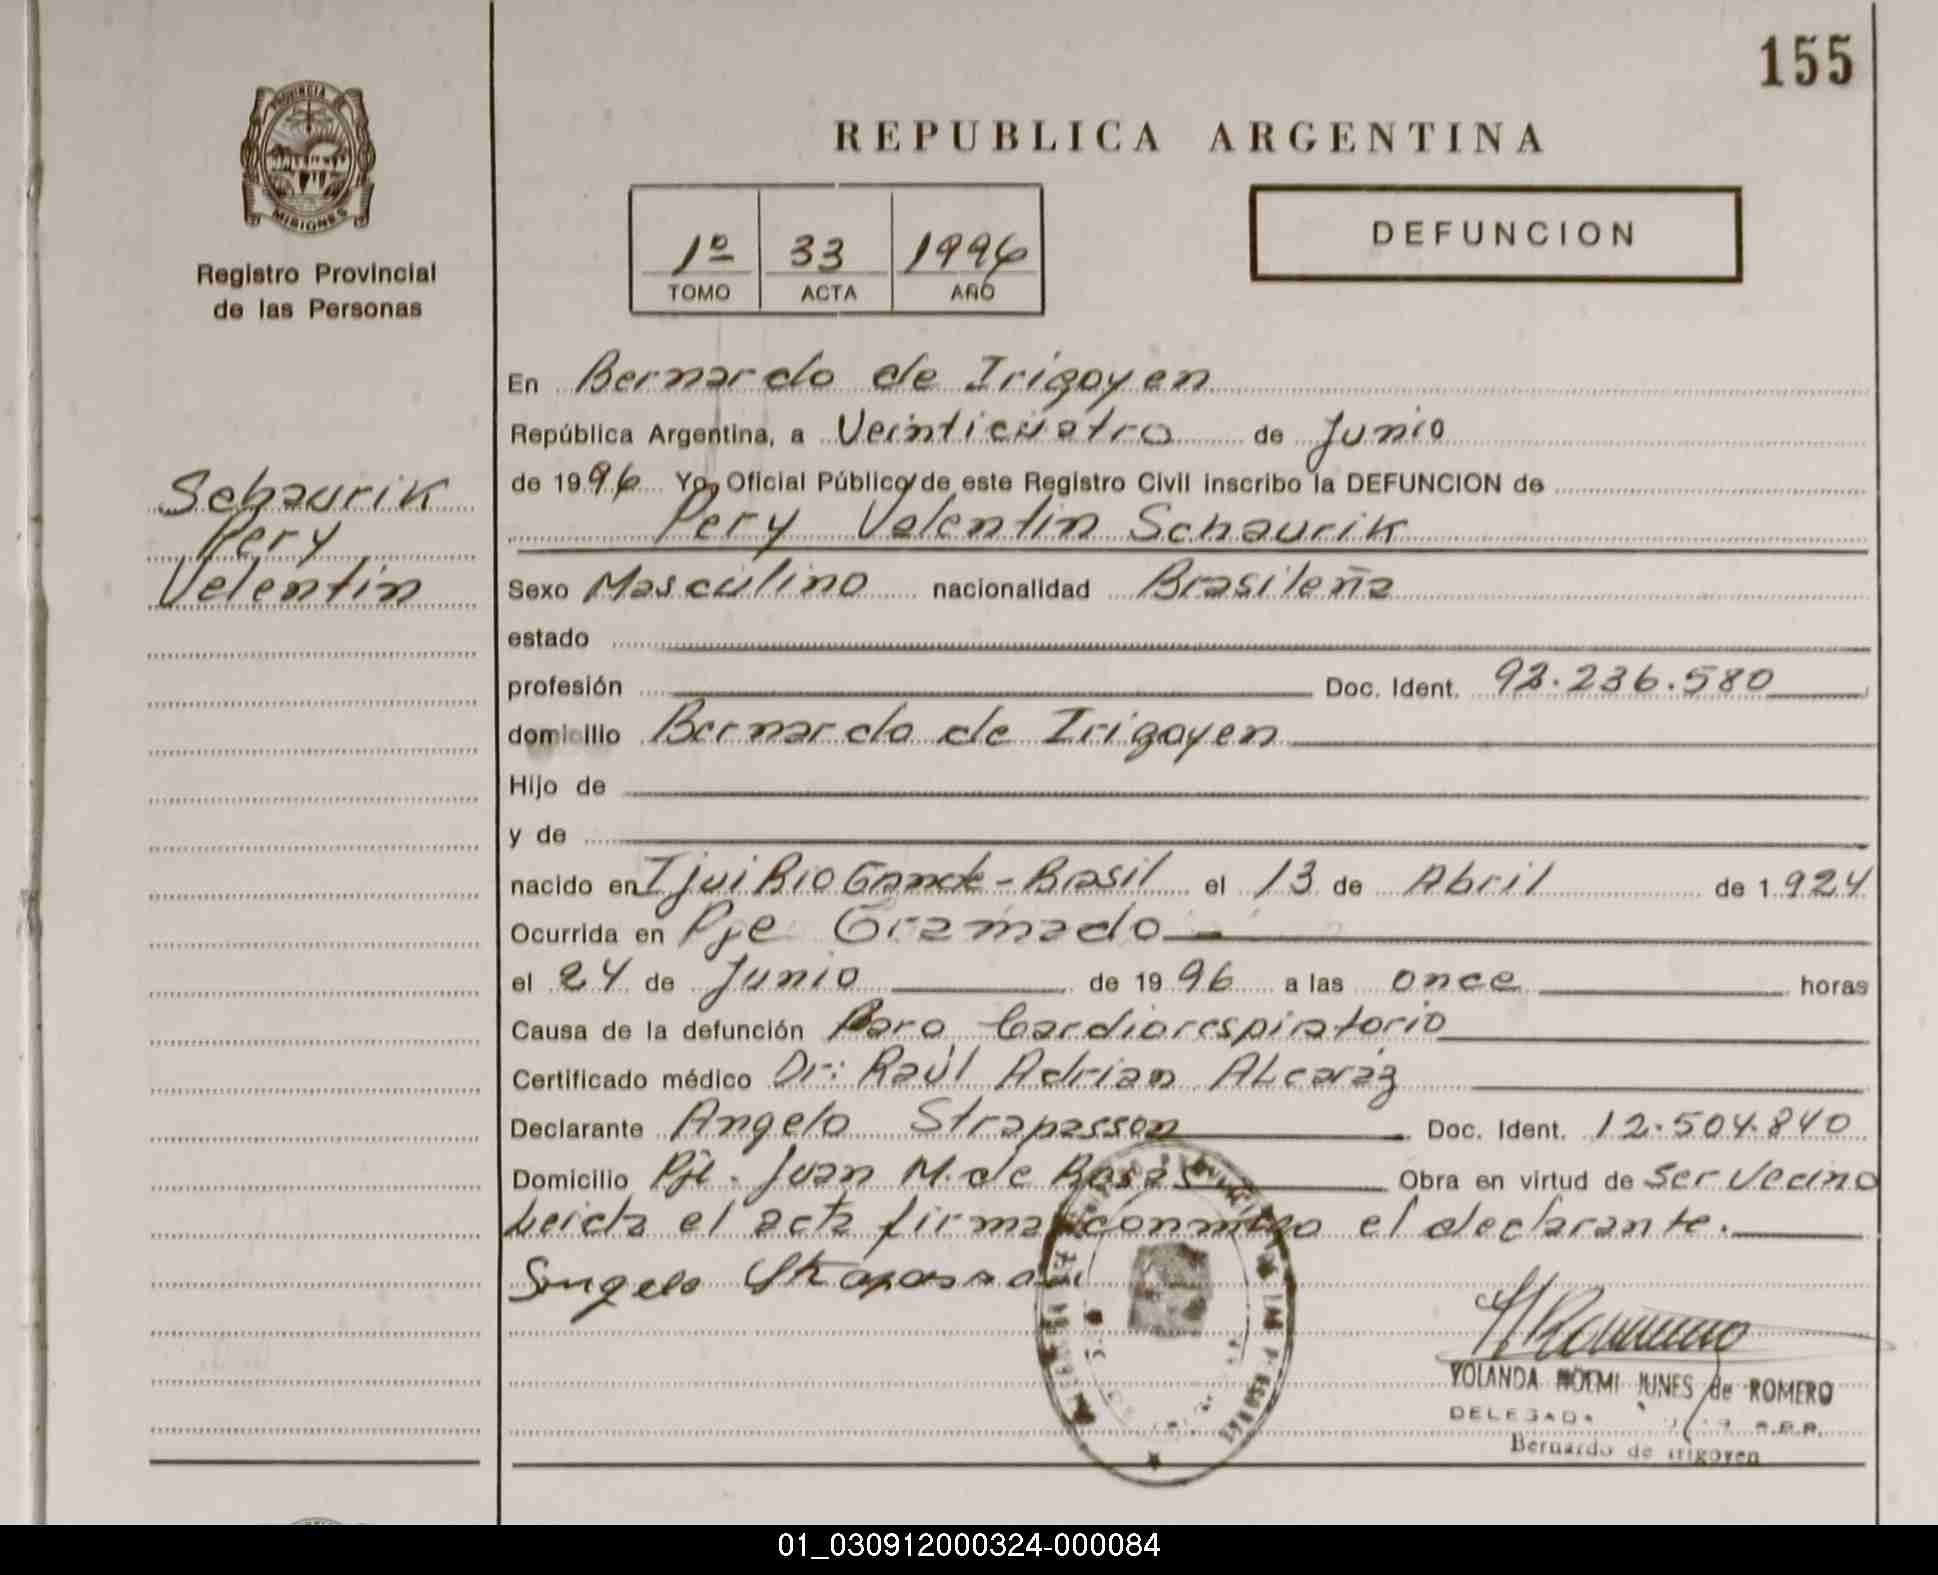 155
PROVINCIA DE
MISIONES
Registro Provincial
de las Personas
REPUBLICA ARGENTINA
1º 33 1996
TOMO ACTA AÑO
DEFUNCION
Schaurik
Pery
Velentin
En Bernardo de Irigoyen
República Argentina, a Veinticuatro de Junio
de 1996 Yo, Oficial Público de este Registro Civil inscribo la DEFUNCION de
Pery Valentin Schaurik
Sexo Masculino nacionalidad Brasileña
estado
profesión Doc. Ident. 92.236.580
domicilio Bernardo de Irigoyen
Hijo de
y de
nacido en Ijui Rio Grande - Brasil el 13 de Abril de 1.924
Ocurrida en Pje Gramado
el 24 de Junio de 1996 a las once horas
Causa de la defunción Paro Cardiorespiratorio
Certificado médico Dr: Raúl Adrian ALcaráz
Declarante Angelo Strapasson Doc. Ident. 12.504.840
Domicilio Pje. Juan M. de Rosas Obra en virtud de Ser Vecino
Leida el acta firma conmigo el declarante.
Angelo Strapasson
YOLANDA NOEMI JUNES de ROMERO
DELEGADA R.P.P.
Bernardo de Irigoyen
01_030912000324-000084